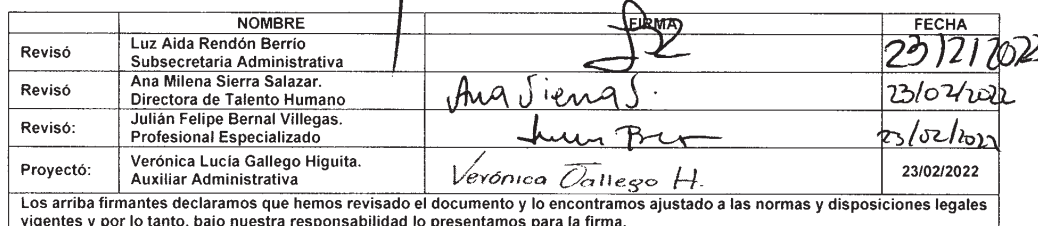 NOMBRE FIRMA FECHA
Revisó Luz Aida Rendón Berrío
Subsecretaria Administrativa 23/2/2022
Revisó Ana Milena Sierra Salazar.
Directora de Talento Humano Ana Sierra S. 23/02/2022
Revisó: Julián Felipe Bernal Villegas.
Profesional Especializado 23/02/2022
Proyectó: Verónica Lucía Gallego Higuita.
Auxiliar Administrativa Verónica Gallego H. 23/02/2022
Los arriba firmantes declaramos que hemos revisado el documento y lo encontramos ajustado a las normas y disposiciones legales
vigentes y por lo tanto, bajo nuestra responsabilidad lo presentamos para la firma.